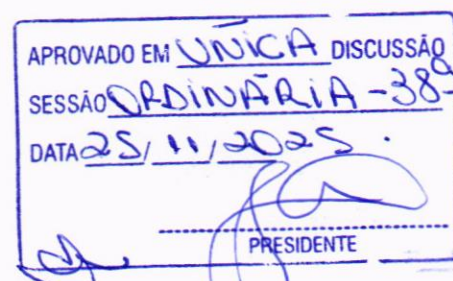 APROVADO EM ÚNICA DISCUSSÃO
SESSÃO ORDINÁRIA - 38ª
DATA 25/11/2025.
PRESIDENTE